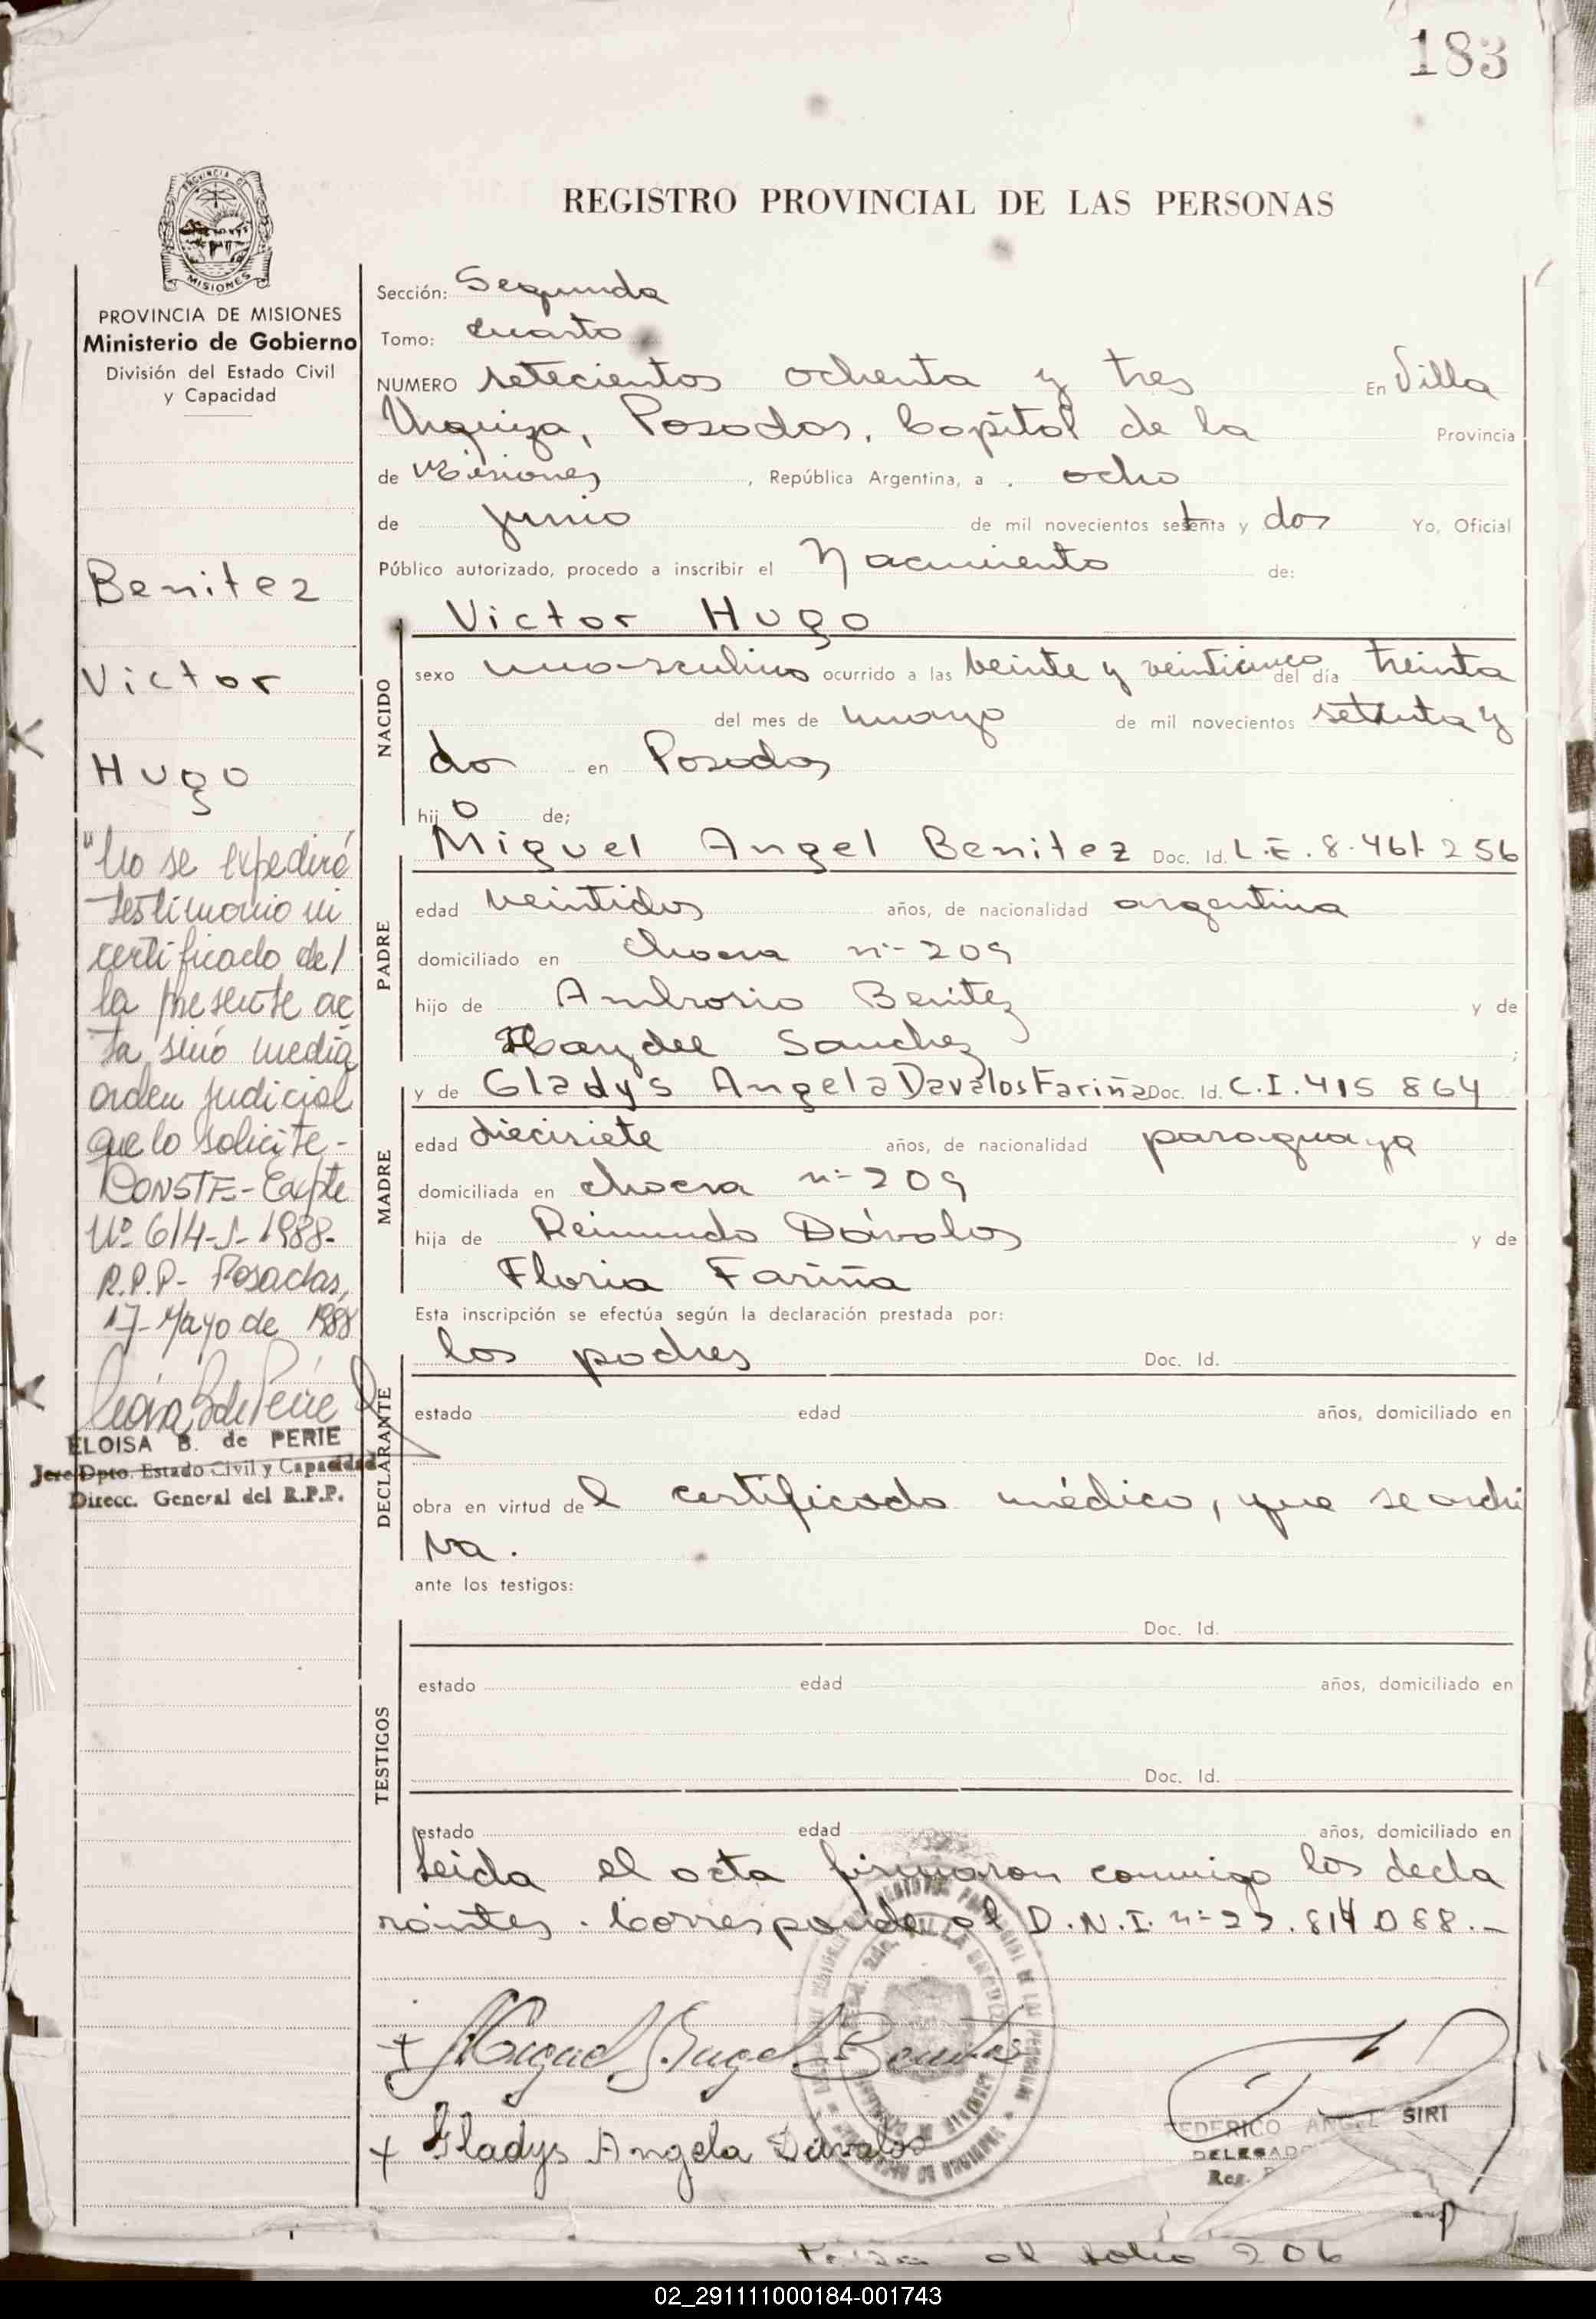 183
PROVINCIA DE
MISIONES
REGISTRO PROVINCIAL DE LAS PERSONAS
PROVINCIA DE MISIONES
Ministerio de Gobierno
División del Estado Civil
y Capacidad
Benitez
Victor
Hugo
"No se expedirá
testimonio ni
certificado de/
la presente ac
ta sinó media
orden judicial
que lo solicite-
CONSTE-Expte
Nº 614-S-1988-
R.P.P- Posadas,
17-Mayo de 1988
ELOISA B. de PERIE
Jefe Dpto. Estado Civil y Capacidad
Direcc. General del R.P.P.
Sección: Segunda
Tomo: cuarto
NUMERO setecientos ochenta y tres En Villa
Urquiza, Posadas, Capital de la Provincia
de Misiones, República Argentina, a ocho
de junio de mil novecientos setenta y dos Yo, Oficial
Público autorizado, procedo a inscribir el Nacimiento de:
Victor Hugo
NACIDO
sexo masculino ocurrido a las veinte y veinticinco del día treinta
del mes de mayo de mil novecientos setenta y
dos en Posadas
hijo de;
Miguel Angel Benitez Doc. Id. L.E. 8.461.256
PADRE
edad veintidos años, de nacionalidad argentina
domiciliado en chacra nº 209
hijo de Ambrosio Benitez y de
Haydee Sanchez;
y de Gladys Angela Davalos Fariña Doc. Id. C.I. 415 864
MADRE
edad diecisiete años, de nacionalidad paraguaya
domiciliada en chacra nº 209
hija de Reimundo Dávalos y de
Floria Fariña
Esta inscripción se efectúa según la declaración prestada por:
los padres Doc. Id.
DECLARANTE
estado edad años, domiciliado en
obra en virtud del certificado médico, que se archi
va.
ante los testigos:
Doc. Id.
TESTIGOS
estado edad años, domiciliado en
Doc. Id.
estado edad años, domiciliado en
Leida el acta firmaron conmigo los decla
rantes. Corresponde al D.N.I. nº
+ Miguel Angel Benitez
+ Gladys Angela Dávalos
FEDERICO ANGEL SIRI
DELEGADO
Reg.
al folio 206
02_291111000184-001743